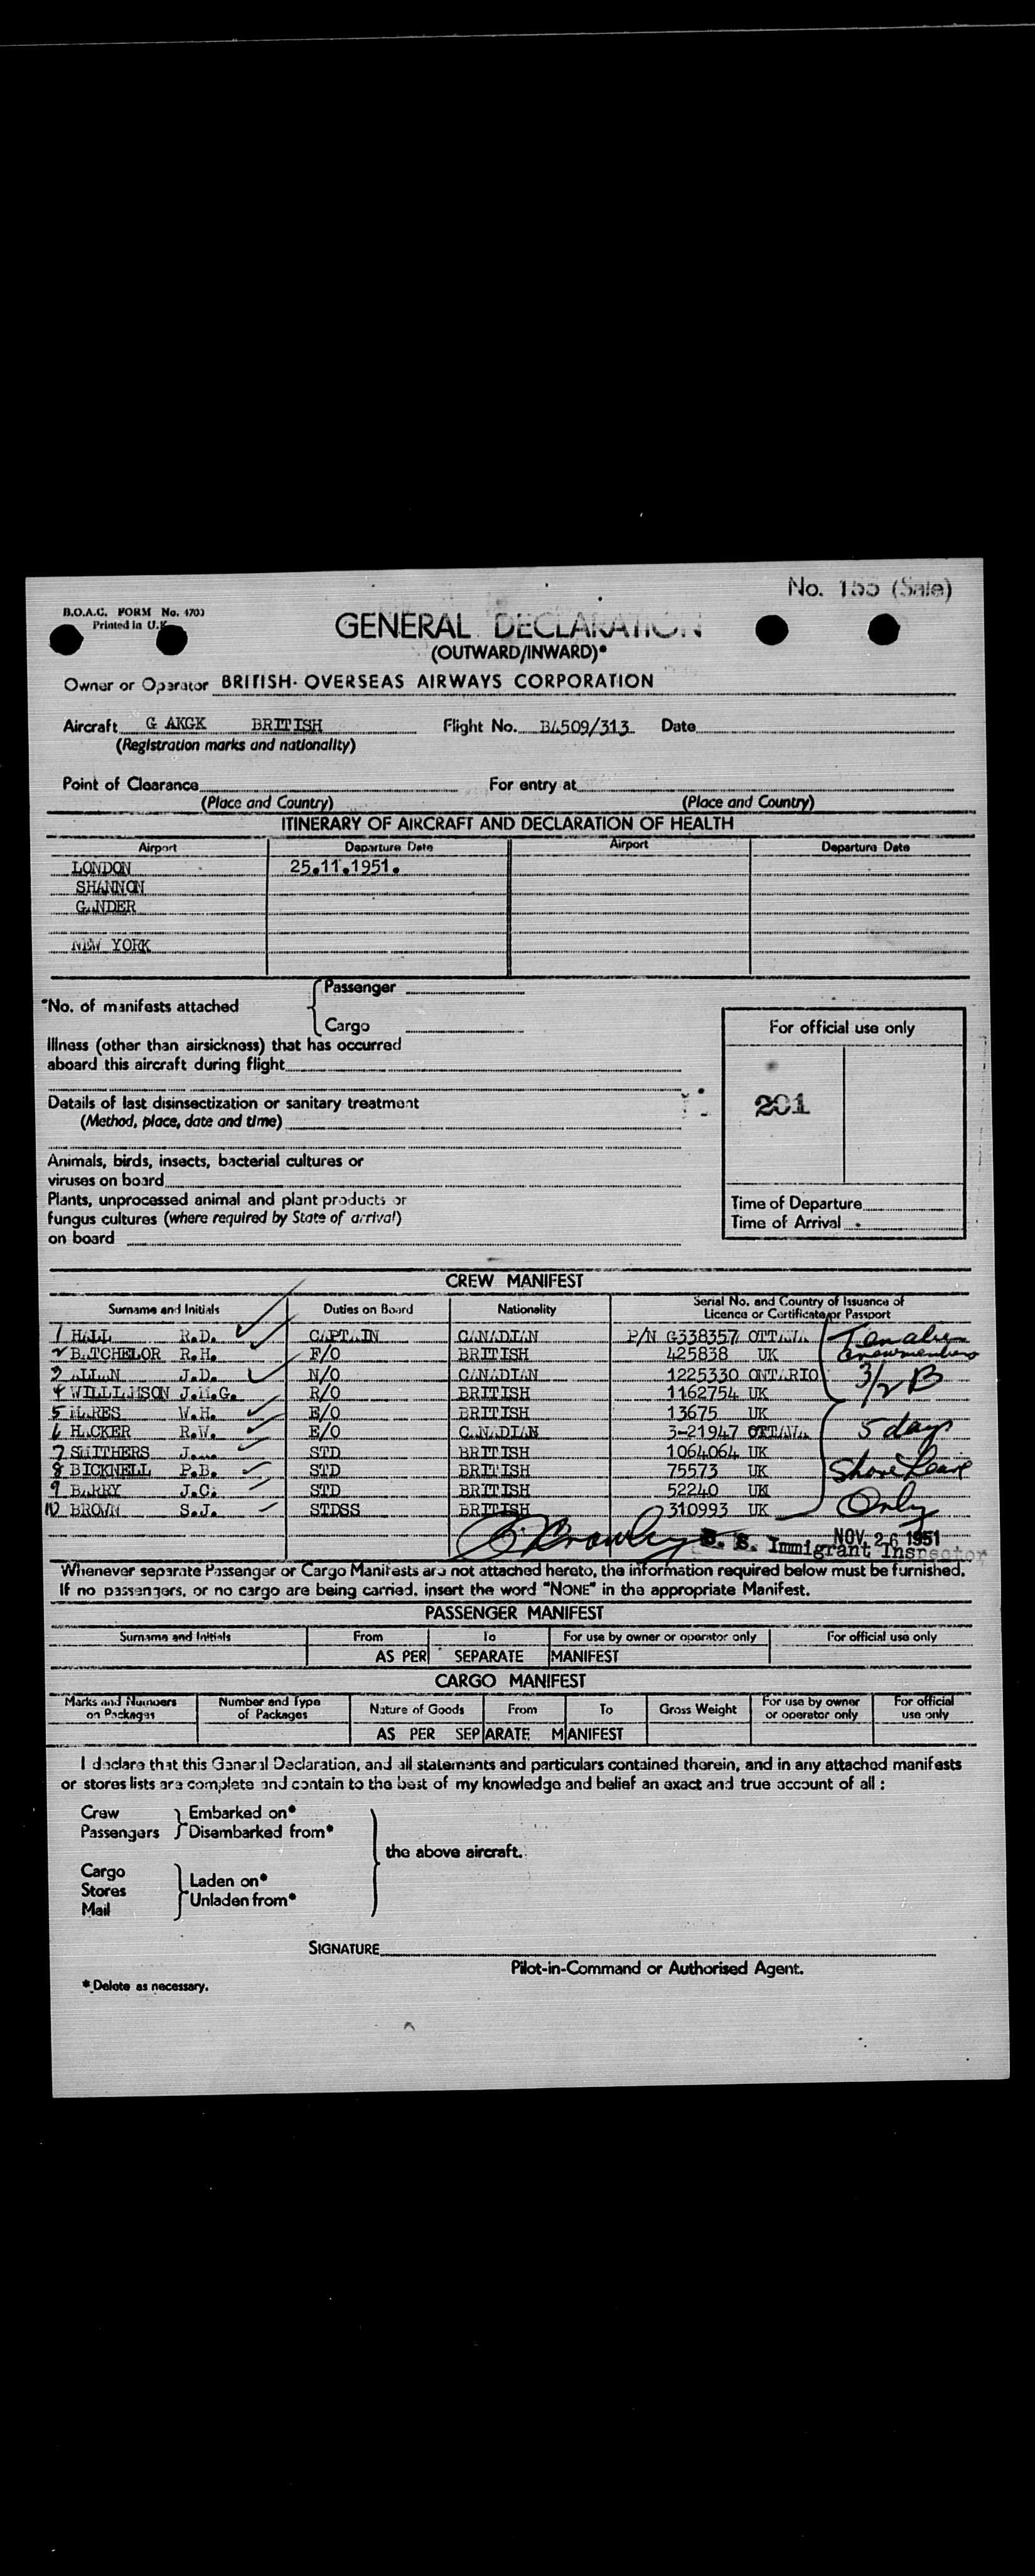 No. 155 (Sale)
B.O.A.C. FORM No. 4703
Printed in U.K.
GENERAL DECLARATION
(OUTWARD/INWARD)*
Owner or Operator BRITISH OVERSEAS AIRWAYS CORPORATION
Aircraft G AKGK BRITISH Flight No. BA509/313 Date
(Registration marks and nationality)
Point of Clearance For entry at
(Place and Country) (Place and Country)
ITINERARY OF AIRCRAFT AND DECLARATION OF HEALTH
Airport Departure Date Airport Departure Date
LONDON 25.11.1951.
SHANNON
GANDER
NEW YORK
*No. of manifests attached { Passenger
Cargo
For official use only
Illness (other than airsickness) that has occurred
aboard this aircraft during flight
Details of last disinsectization or sanitary treatment
(Method, place, date and time)
201
Animals, birds, insects, bacterial cultures or
viruses on board
Plants, unprocessed animal and plant products or
fungus cultures (where required by State of arrival)
on board
Time of Departure
Time of Arrival
CREW MANIFEST
Surname and Initials Duties on Board Nationality Serial No. and Country of Issuance of Licence or Certificate or Passport
1 HALL R.D. CAPTAIN CANADIAN P/N G338357 OTTAWA Ten alien
2 BATCHELOR R.H. F/O BRITISH 425838 UK crewmembers
3 ALLAN J.D. N/O CANADIAN 1225330 ONTARIO 3/2 B
4 WILLIAMSON J.M.G. R/O BRITISH 1162754 UK
5 MARES W.H. E/O BRITISH 13675 UK
6 HACKER R.W. E/O CANADIAN 3-21947 OTTAWA 5 days
7 SMITHERS J. STD BRITISH 1064064 UK
8 BICKNELL P.B. STD BRITISH 75573 UK Shore Leave
9 BARRY J.C. STD BRITISH 52240 UK
10 BROWN S.J. STDSS BRITISH 310993 UK Only
NOV 26 1951
U. S. Immigrant Inspector
Whenever separate Passenger or Cargo Manifests are not attached hereto, the information required below must be furnished.
If no passengers, or no cargo are being carried, insert the word "NONE" in the appropriate Manifest.
PASSENGER MANIFEST
Surname and Initials From To For use by owner or operator only For official use only
AS PER SEPARATE MANIFEST
CARGO MANIFEST
Marks and Numbers on Packages Number and Type of Packages Nature of Goods From To Gross Weight For use by owner or operator only For official use only
AS PER SEPARATE MANIFEST
I declare that this General Declaration, and all statements and particulars contained therein, and in any attached manifests
or stores lists are complete and contain to the best of my knowledge and belief an exact and true account of all :
Crew } Embarked on*
Passengers } Disembarked from*
the above aircraft.
Cargo
Stores } Laden on*
Mail } Unladen from*
SIGNATURE
Pilot-in-Command or Authorised Agent.
* Delete as necessary.